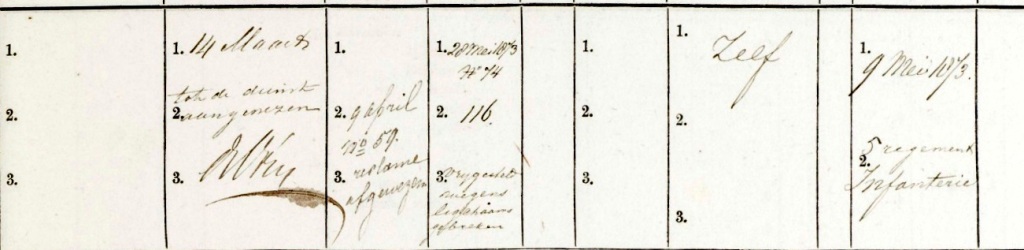 1.
2.
3.
1. 14 Maart
tot de dienst
2. aangewezen
3.
1.
2. 9 april
No 59.
3. reclame
afgewezen
1. 28 Mei 1873
No 74
2. 116
3. Vrijgesteld
wegens
ligchaams
gebreken
1.
2.
3.
1.
Zelf
2.
3.
1.
9 Mei 1873.
5 regement
2.
Infanterie